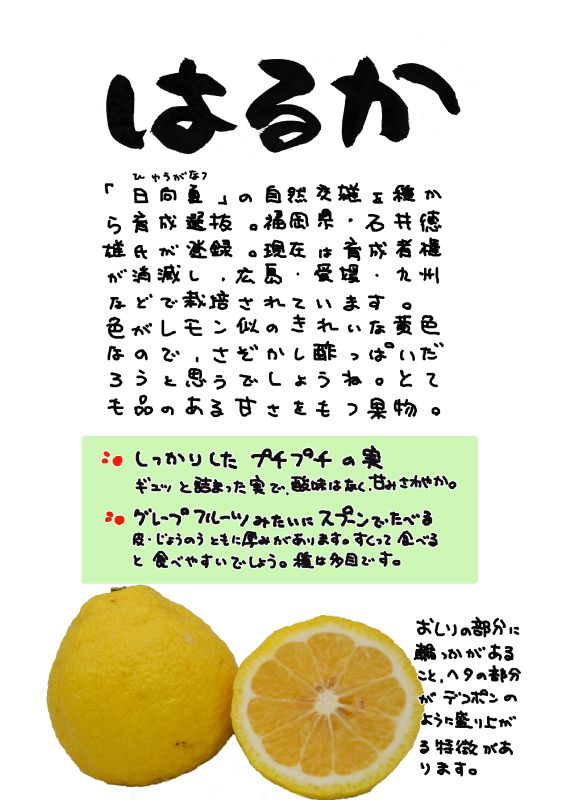 はるか
ひゅうがなつ
「日向夏」の自然交雑を種か
ら育成選抜。福岡県・石井徳
雄氏が登録。現在は育成者権
が消滅し、広島・愛媛・九州
などで栽培されています。
色がレモン似のきれいな黄色
なので、さぞかし酢っぱいだ
ろうと思うでしょうね。とて
も品のある甘さをもつ果物。
しっかりした プチプチ の 実
ギュッと詰まった実で、酸味はなく、甘みさわやか。
グレープフルーツみたいに スプンでたべる
皮・じょうのうともに厚みがあります。すくって食べる
と 食べやすいでしょう。種は多目です。
おしりの部分に
輪っかがある
こと、ヘタの部分
が デコポンの
ように盛り上が
る特徴があ
ります。